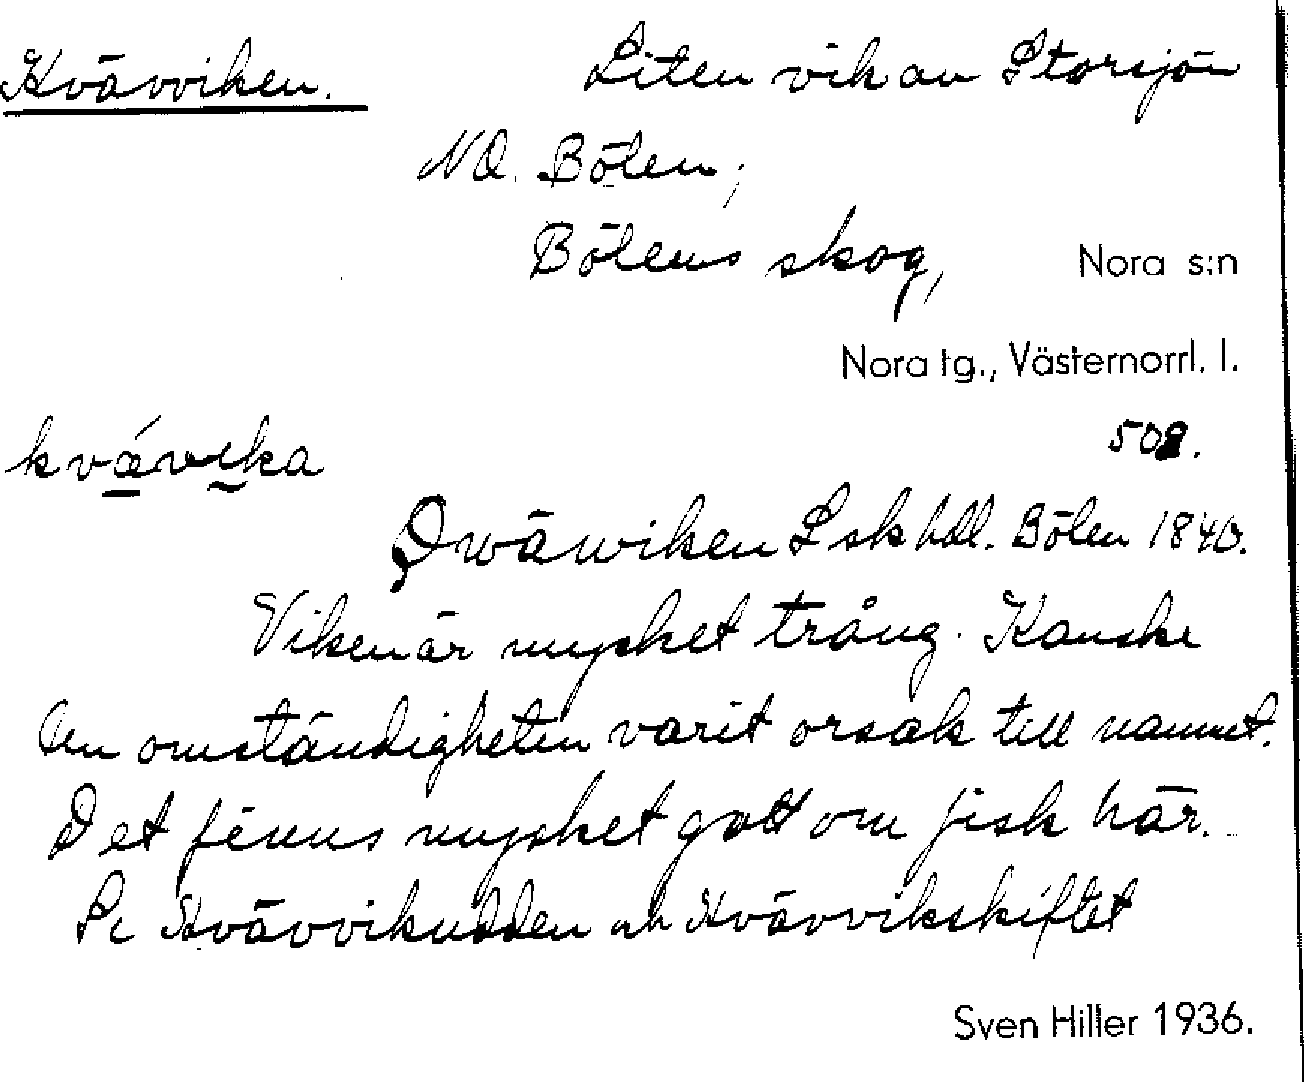 Kvävviken. Liten vik av Storsjön
NO. Bölen,
Bölens skog, Nora s:n
Nora tg., Västernorrl. l.
508.
kvǽvika
Qwäwiken Lskhdl. Bölen 1840.
Viken är mycket trång. Kanske
den omständigheten varit orsak till namnet.
Det finns mycket gott om fisk här.
Se Kvävvikudden och Kvävvikskiftet
Sven Hiller 1936.